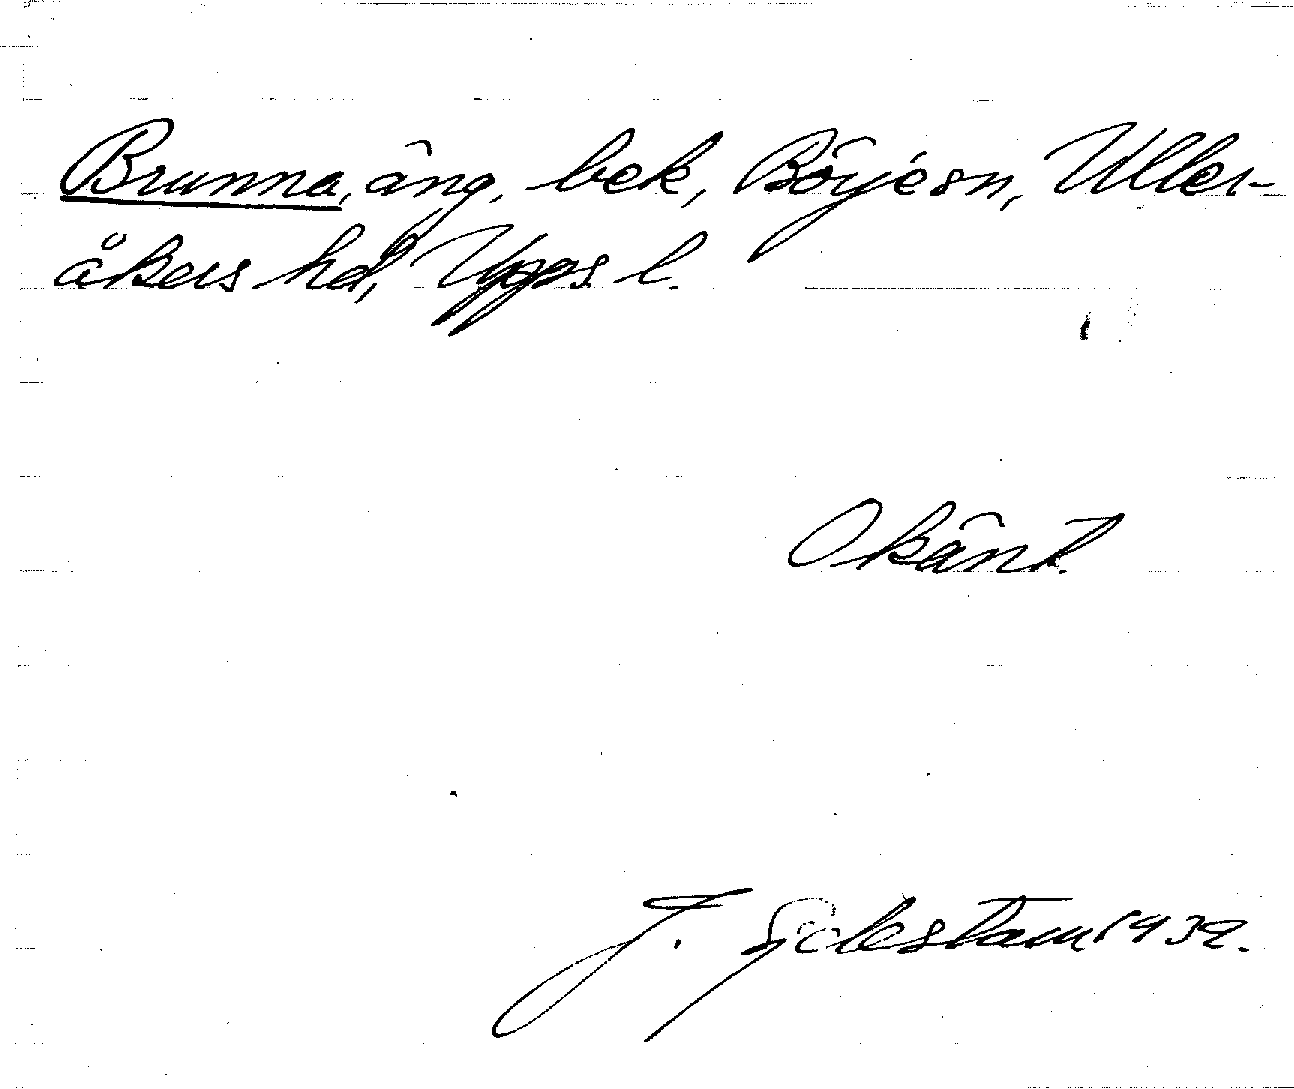 Brunna, äng, bek, Böje sn, Uller-
åkers hd, Upps. l.
Okänt.
J. Sjelestam 1932.